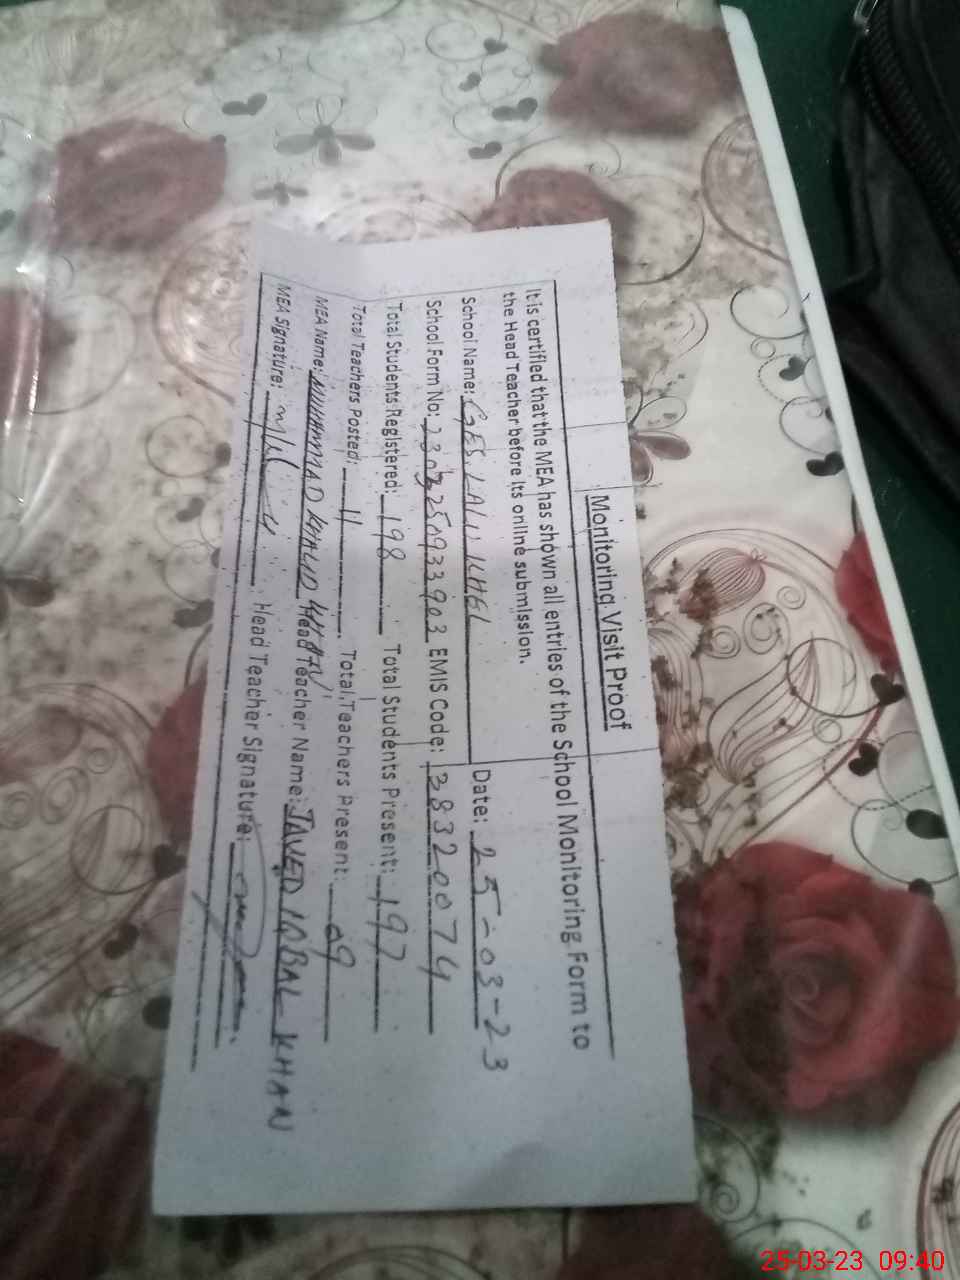 Monitoring Visit Proof
It is certified that the MEA has shown all entries of the School Monitoring Form to
the Head Teacher before its online submission.
School Name: GES. Date: 25-03-23
School Form No: EMIS Code: 38320074
Total Students Registered: 198 Total Students Present: 197
Total Teachers Posted: 11 Total Teachers Present: 09
MEA Name: MUHMMAD KHALID KHAN Head Teacher Name: JAVED IQBAL KHAN
MEA Signature: Head Teacher Signature:
25-03-23 09:40